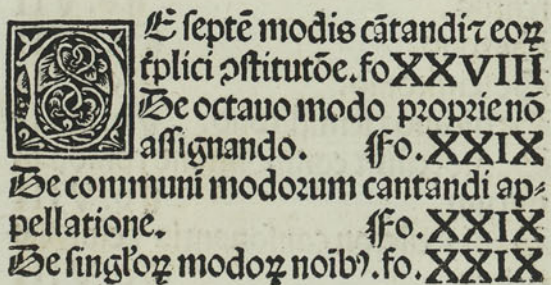 DE septē modis cātandi ⁊ eoꝝ
tͥplici ↄstitutōe. fo XXVIII
De octauo modo proprie nō
assignando. Fo. XXIX
De communi modorum cantandi ap⸗
pellatione. Fo. XXIX
De singl'oꝝ modoꝝ noībꝰ. fo. XXIX